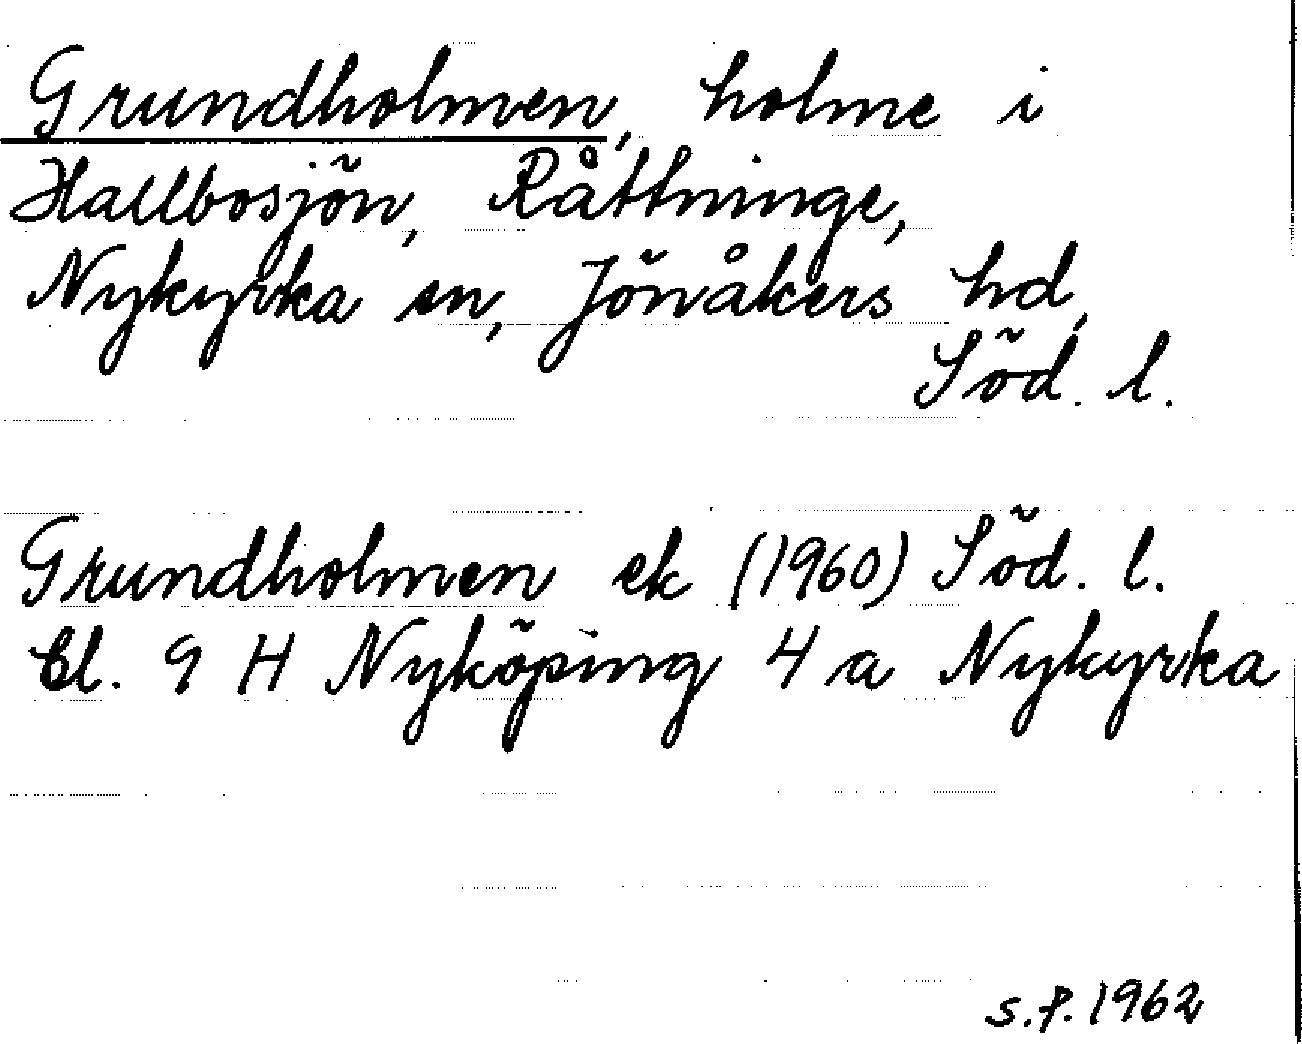 Grundholmen, holme i
Hallbosjön, Råttninge,
Nykyrka sn, Jönåkers hd,
Söd. l.
Grundholmen ek (1960) Söd. l.
bl. 9 H Nyköping 4 a Nykyrka
s.p. 1962